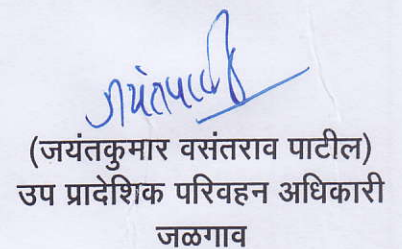 जयंतपाटील
(जयंतकुमार वसंतराव पाटील)
उप प्रादेशिक परिवहन अधिकारी
जळगाव